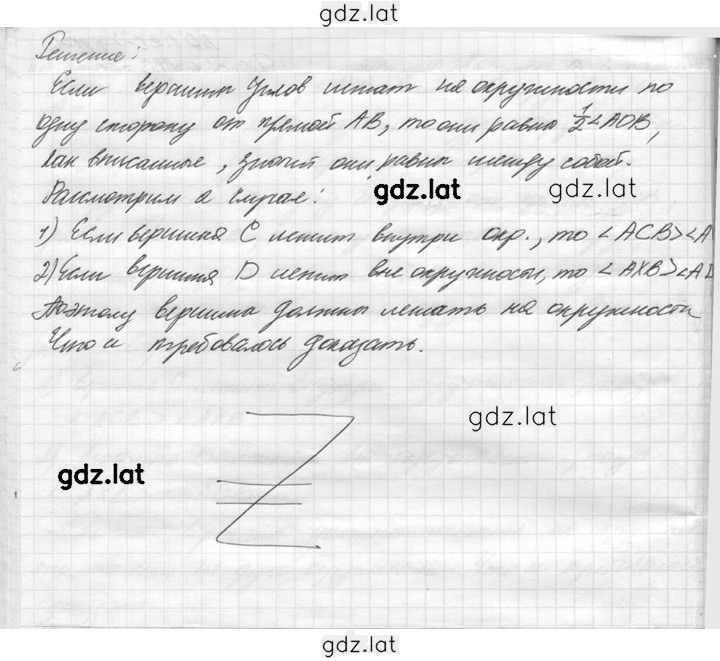 gdz.lat
Решение:
Если вершины углов лежат на окружности по
одну сторону от прямой AB, то они равны 1/2 <AOB,
как вписанные, значит они равны между собой.
gdz.lat
gdz.lat
Рассмотрим 2 случая:
1) Если вершина C лежит внутри окр., то <ACB> <A
2) Если вершина D лежит вне окружности, то <AXB> <AD
Поэтому вершины должны лежать на окружности
Что и требовалось доказать.
gdz.lat
gdz.lat
gdz.lat